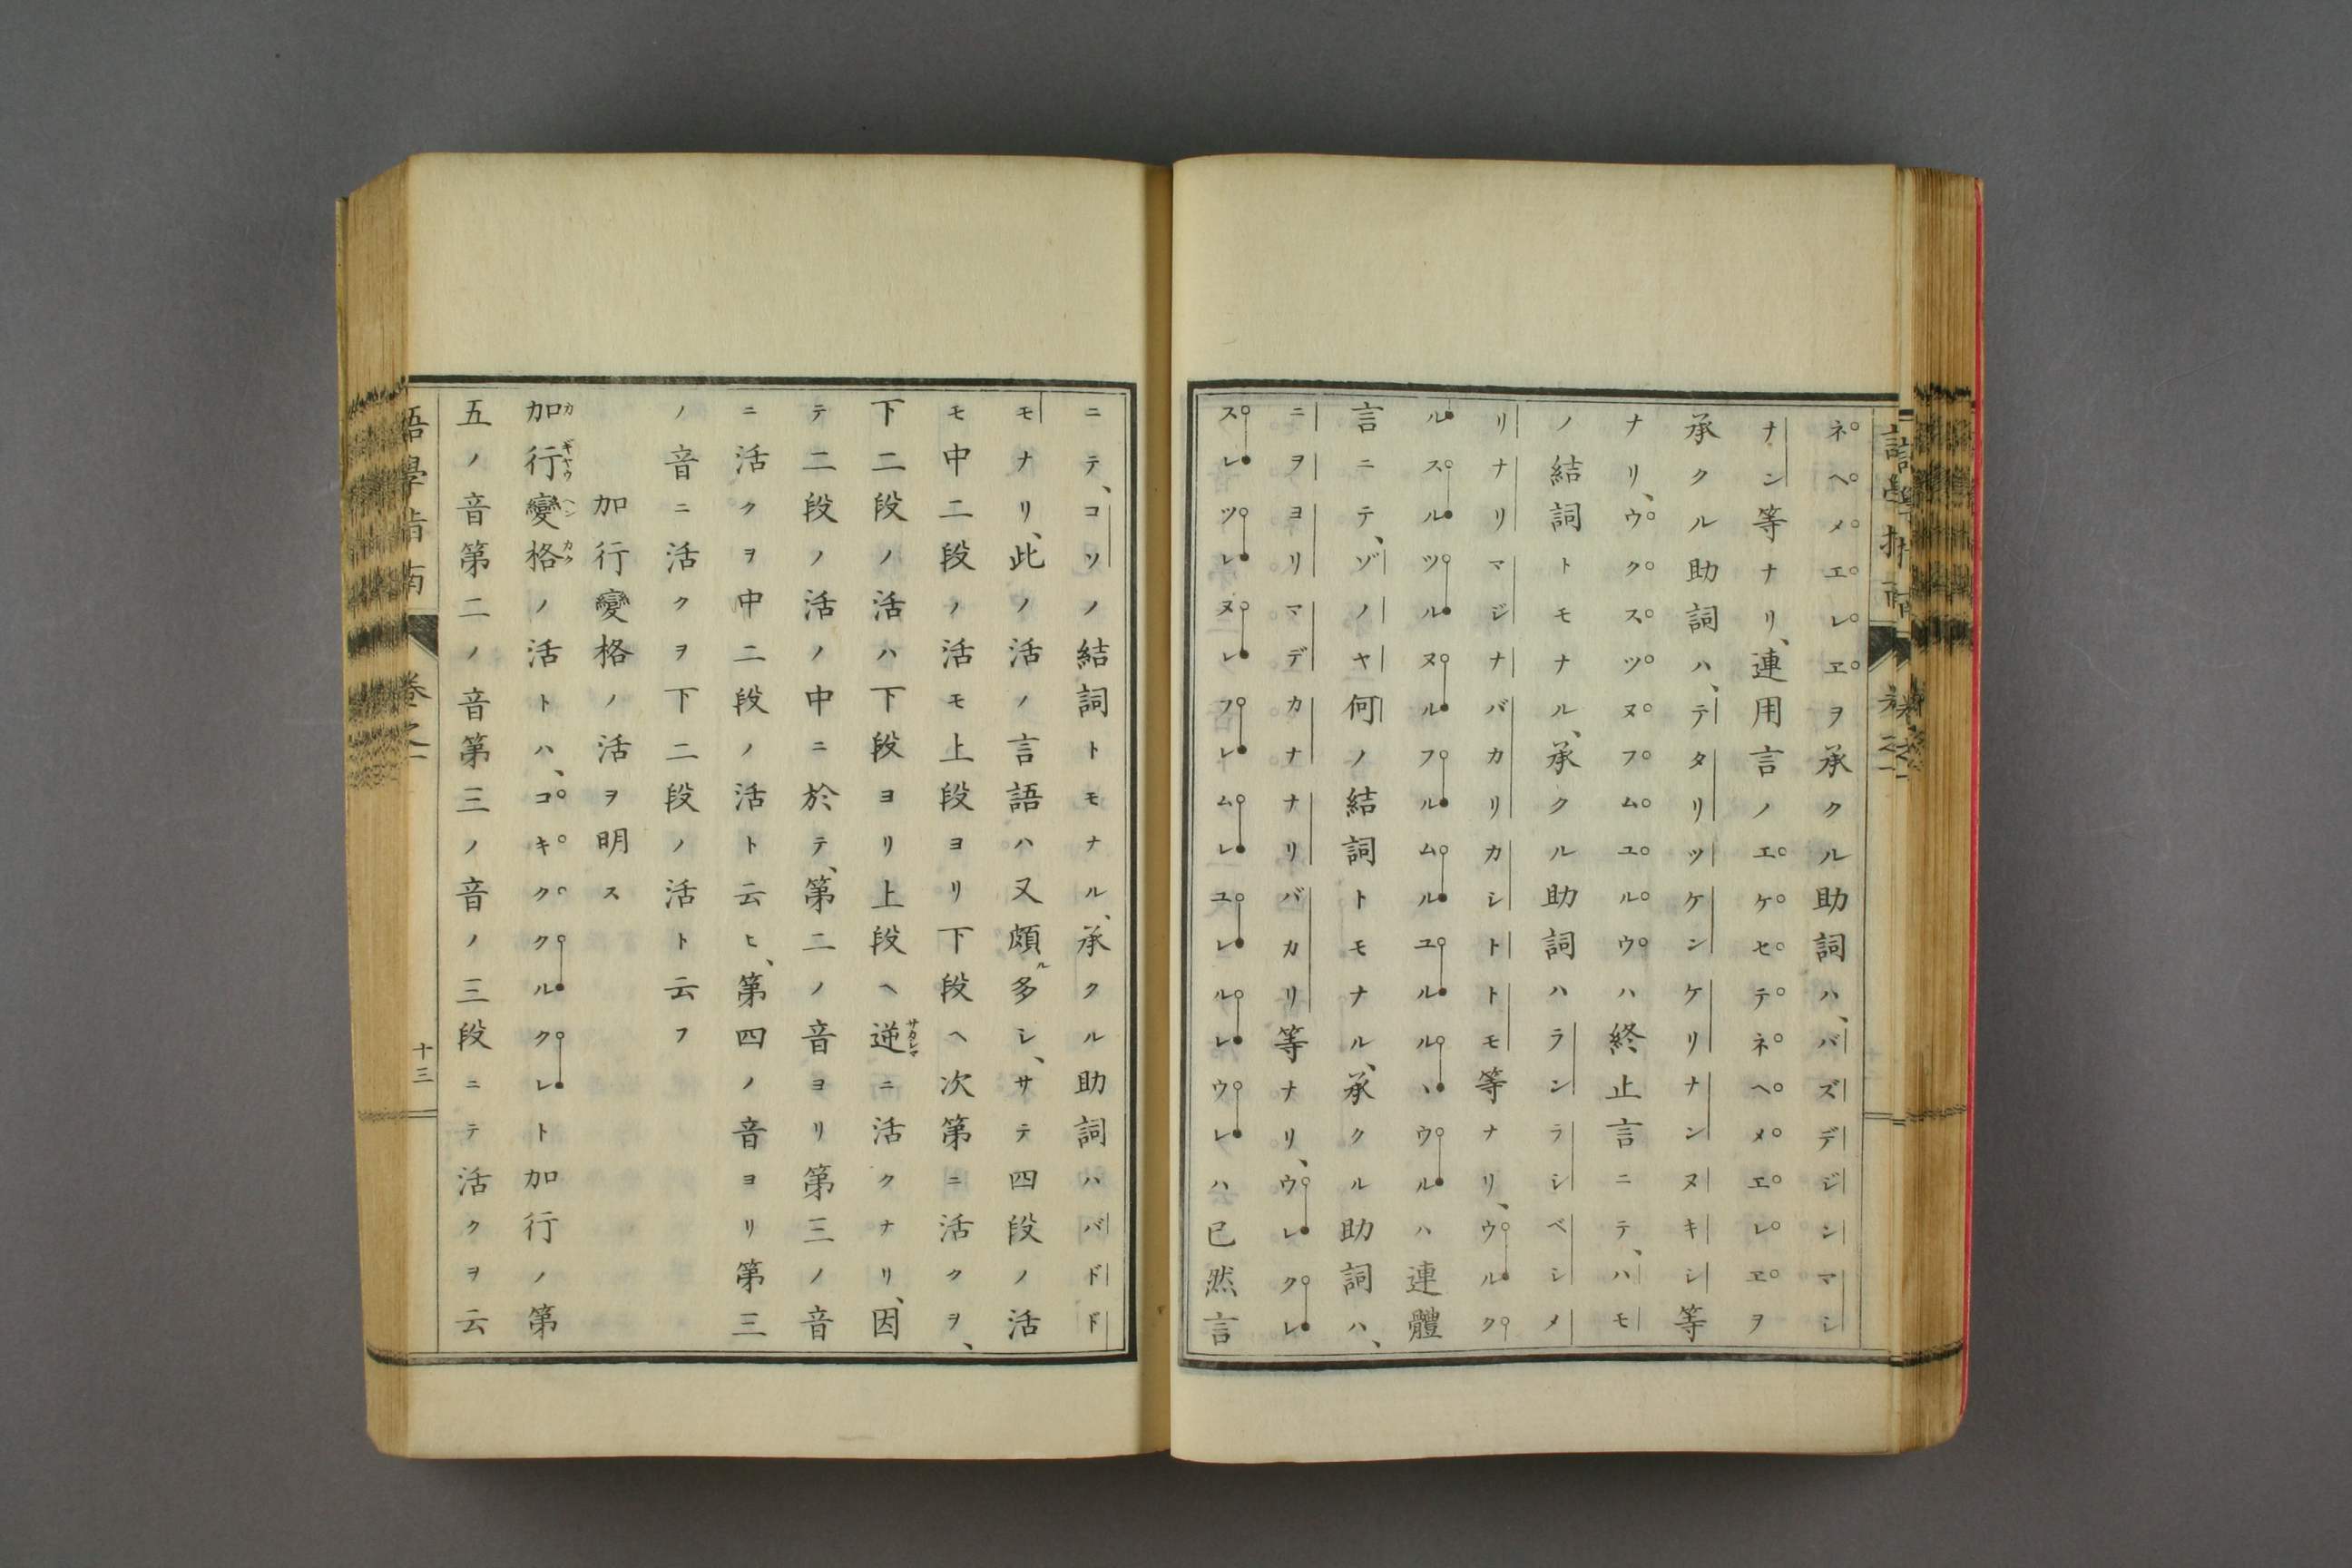 ネヘメエレヱヲ承クル助詞ハ、バズデジンマシ
ナン等ナリ、連用言ノエケセテネヘメエレヱヲ
承クル助詞ハ、テタリツケンケリナンヌキシ等
ナリ、ウクスツヌフムユルウハ終止言ニテ、ハモ
ノ結詞トモナル、承クル助詞ハランラシベシメ
リナリマジナバカリカシトトモ等ナリ、ウルク
ルスルツルヌルフルムルユルルヽウルハ連體
言ニテ、ゾノヤ何ノ結詞トモナル、承クル助詞ハ、
ニヲヨリマデカナナリバカリ等ナリ、ウレクレ
スレツレヌレフレムレユレルレウレハ已然言
ニテ、コソノ結詞トモナル、承クル助詞ハバドド
モナリ、此ノ活ノ言語ハ又頗ル多シ、サテ四段ノ活
モ中二段ノ活モ上段ヨリ下段ヘ次第ニ活クヲ、
下二段ノ活ハ下段ヨリ上段ヘ逆サカシマニ活クナリ、因
テ二段ノ活ノ中ニ於テ、第二ノ音ヨリ第三ノ音
ニ活クヲ中二段ノ活ト云ヒ、第四ノ音ヨリ第三
ノ音ニ活クヲ下二段ノ活ト云フ
加行變格ノ活ヲ明ス
加カ行ギヤウ變ヘン格カクノ活トハ、コキククルクレト加行ノ第
五ノ音第二ノ音第三ノ音ノ三段ニテ活クヲ云
語學指南
卷之一
十三